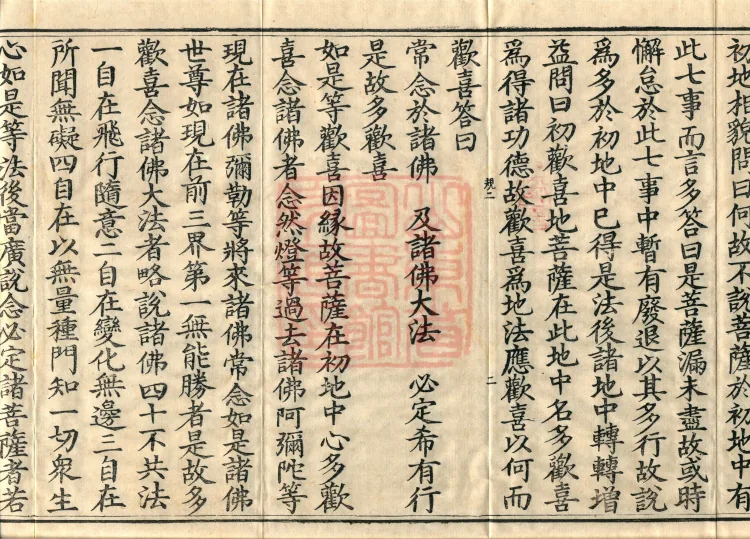 初地相貌問曰何故不說菩薩於初地中有
此七事而言多答曰是菩薩漏未盡故或時
懈怠於此七事中暫有廢退以其多行故說
爲多於初地中已得是法後諸地中轉轉增
益問曰初歡喜地菩薩在此地中名多歡喜
爲得諸功德故歡喜爲地法應歡喜以何而
規二
二
歡喜答曰
常念於諸佛 及諸佛大法 必定希有行
是故多歡喜
如是等歡喜因緣故菩薩在初地中心多歡
喜念諸佛者念然燈等過去諸佛阿彌陀等
現在諸佛彌勒等將來諸佛常念如是諸佛
世尊如現在前三界第一無能勝者是故多
歡喜念諸佛大法者略說諸佛四十不共法
一自在飛行隨意二自在變化無邊三自在
所聞無礙四自在以無量種門知一切衆生
心如是等法後當廣說念必定諸菩薩者若